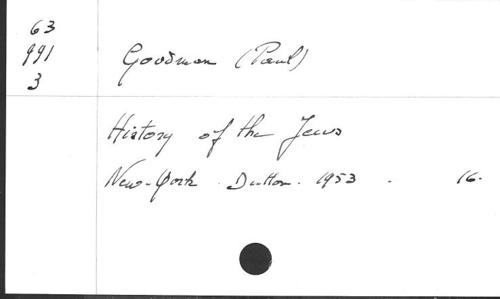 63
991
3
Goodman (Paul)
History of the Jews
New-York . Dutton . 1953 . 16.